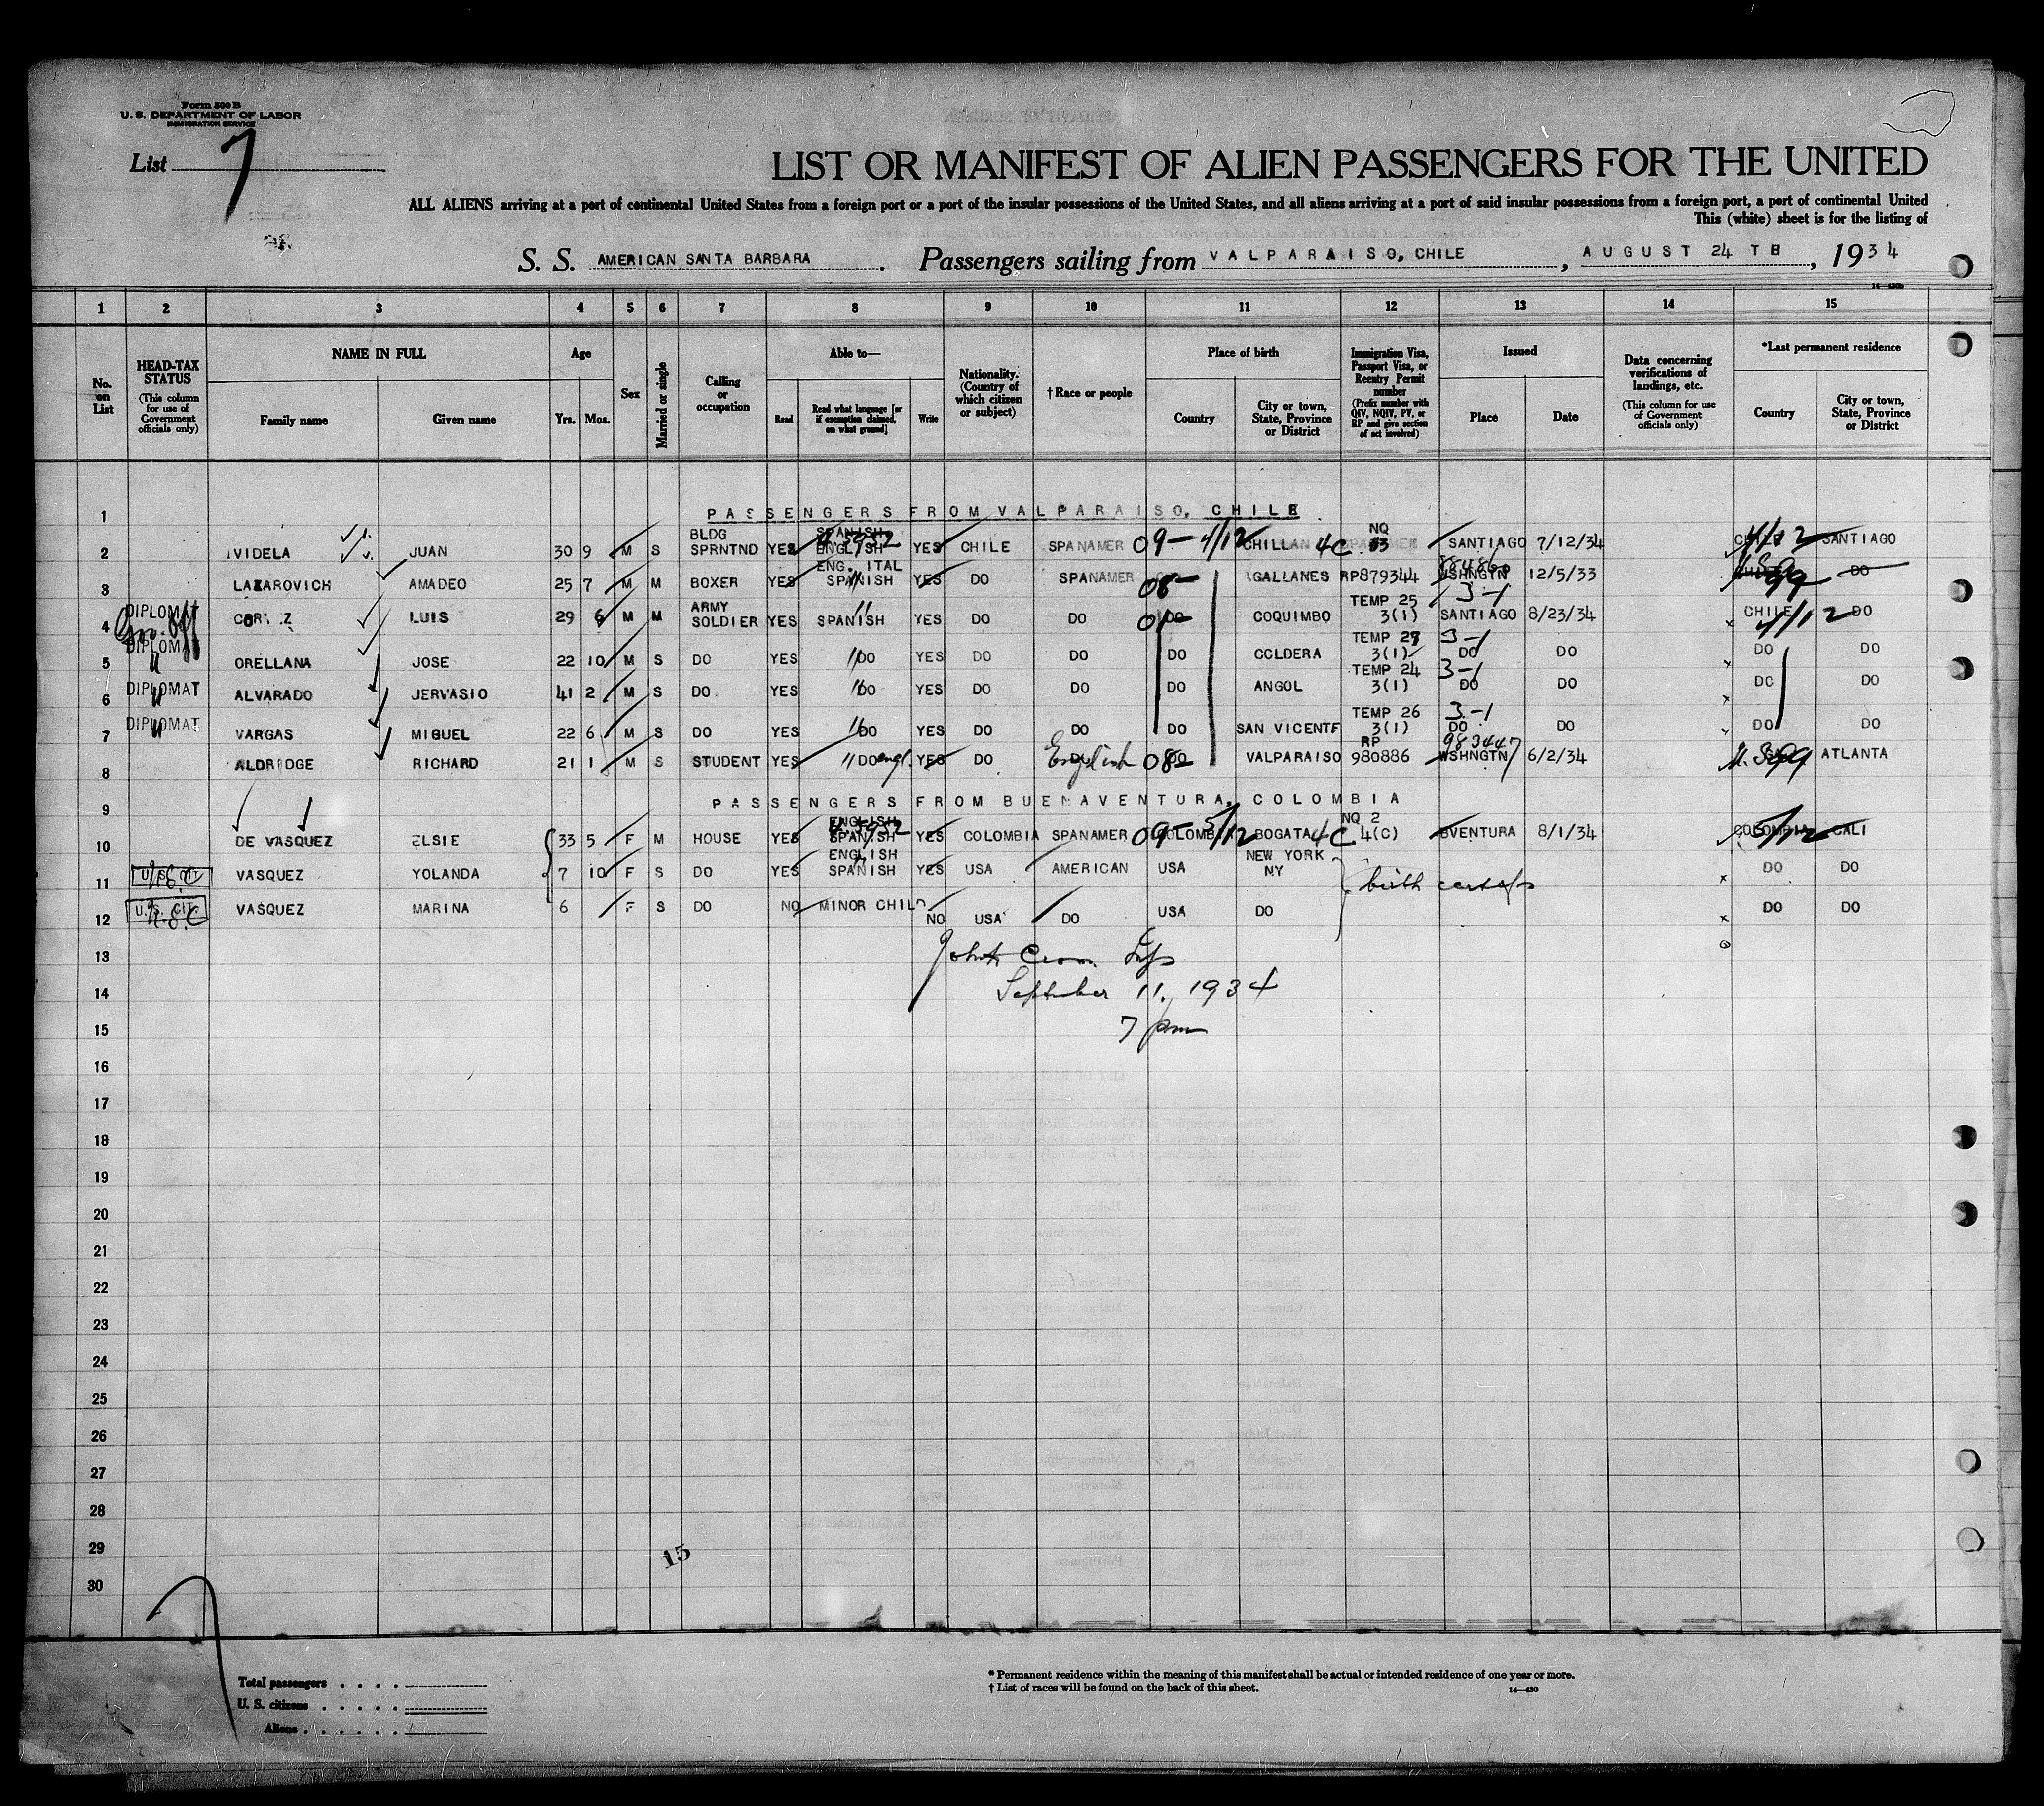 Form 500 B
U. S. DEPARTMENT OF LABOR
IMMIGRATION SERVICE
List 7
LIST OR MANIFEST OF ALIEN PASSENGERS FOR THE UNITED
ALL ALIENS arriving at a port of continental United States from a foreign port or a port of the insular possessions of the United States, and all aliens arriving at a port of said insular possessions from a foreign port, a port of continental United
This (white) sheet is for the listing of
S. S. AMERICAN SANTA BARBARA. Passengers sailing from VALPARAISO, CHILE, AUGUST 24 TH, 1934
1 2 3 4 5 6 7 8 9 10 11 12 13 14 15
No. on List
HEAD-TAX STATUS (This column for use of Government officials only)
NAME IN FULL Family name Given name
Age Yrs. Mos.
Sex
Married or single
Calling or occupation
Able to— Read Read what language [or if exemption claimed, on what ground] Write
Nationality. (Country of which citizen or subject)
† Race or people
Place of birth Country City or town, State, Province or District
Immigration Visa, Passport Visa, or Reentry Permit number (Prefix number with QIV, NQIV, PV, or RP and give section of act involved)
Issued Place Date
Data concerning verifications of landings, etc. (This column for use of Government officials only)
*Last permanent residence Country City or town, State, Province or District
1 PASSENGERS FROM VALPARAISO, CHILE
2 VIDELA JUAN 30 9 M S BLDG SPRNTND YES SPANISH ENGLISH YES CHILE SPANAMER 09 - 4/12 CHILLAN 4C NQ SANTIAGO 7/12/34 CHILE 4/12 SANTIAGO
3 LAZAROVICH AMADEO 25 7 M M BOXER YES ENG. ITAL SPANISH YES DO SPANAMER 08- GALLANES RP879344 WSHNGTN 12/5/33 DO
4 DIPLOMAT Gov. Off LUIS 29 6 M M ARMY SOLDIER YES SPANISH YES DO DO DO COQUIMBO TEMP 25 3(1) 3-1 SANTIAGO 8/23/34 CHILE 4/12 DO
5 DIPLOMAT " ORELLANA JOSE 22 10 M S DO YES DO YES DO DO DO COLDERA TEMP 3(1) 3-1 DO DO DO DO
6 DIPLOMAT " ALVARADO JERVASIO 41 2 M S DO YES DO YES DO DO DO ANGOL TEMP 24 3(1) 3-1 DO DO DO DO
7 DIPLOMAT " VARGAS MIGUEL 22 6 M S DO YES DO YES DO DO DO SAN VICENTE TEMP 26 3(1) 3-1 DO DO DO DO
8 ALDRIDGE RICHARD 21 1 M S STUDENT YES DO engl. YES DO English 08- DO VALPARAISO RP 980886 983447 WSHNGTN 6/2/34 ATLANTA
9 PASSENGERS FROM BUENAVENTURA, COLOMBIA
10 DE VASQUEZ ELSIE 33 5 F M HOUSE YES ENGLISH SPANISH YES COLOMBIA SPANAMER 09- 5/12 COLOMBIA BOGATA 4C NQ 2 4(C) BVENTURA 8/1/34 COLOMBIA 5/12 CALI
11 U.S. CIT. VASQUEZ YOLANDA 7 10 F S DO YES ENGLISH SPANISH YES USA AMERICAN USA NEW YORK NY birth certfs DO DO
12 U.S. CIT. VASQUEZ MARINA 6 F S DO NO MINOR CHILD NO USA DO USA DO DO DO
13
14 September 11, 1934
15 7 pm
16
17
18
19
20
21
22
23
24
25
26
27
28
29
15
30
Total passengers
U. S. citizens
Aliens
* Permanent residence within the meaning of this manifest shall be actual or intended residence of one year or more.
† List of races will be found on the back of this sheet.
14—430